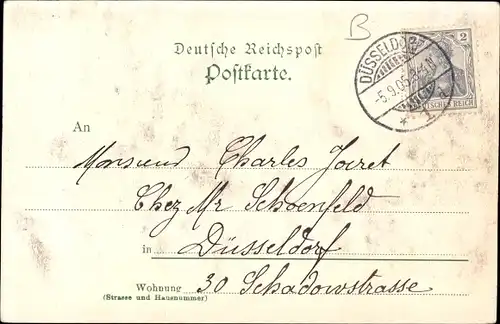 B
Deutsche Reichspost
Postkarte.
DÜSSELDORF
-5.9.05.
* 1 a
2
DEUTSCHES REICH
An
Monsieur Charles Joiret
Chez Mr Schoenfeld
in Düsseldorf
Wohnung 30 Schadowstrasse
(Strasse und Hausnummer)